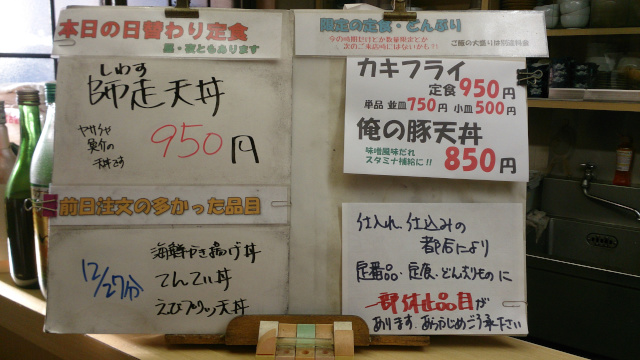 本日の日替わり定食
昼・夜ともあります
しわす
師走天丼
950円
天丼です
前日注文の多かった品目
12/27分
海鮮かき揚げ丼
てんてい丼
えびブリッツ天丼
限定の定食・どんぶり
今の時期だけとか数量限定とか
ご飯の大盛りは別途料金
カキフライ
定食950円
単品 並皿750円 小皿500円
俺の豚天丼
味噌風味だれ
スタミナ補給に!! 850円
仕入れ、仕込みの
都合により
定番品・定食・どんぶりものに
一部休止品目が
あります。あらかじめご了承下さい